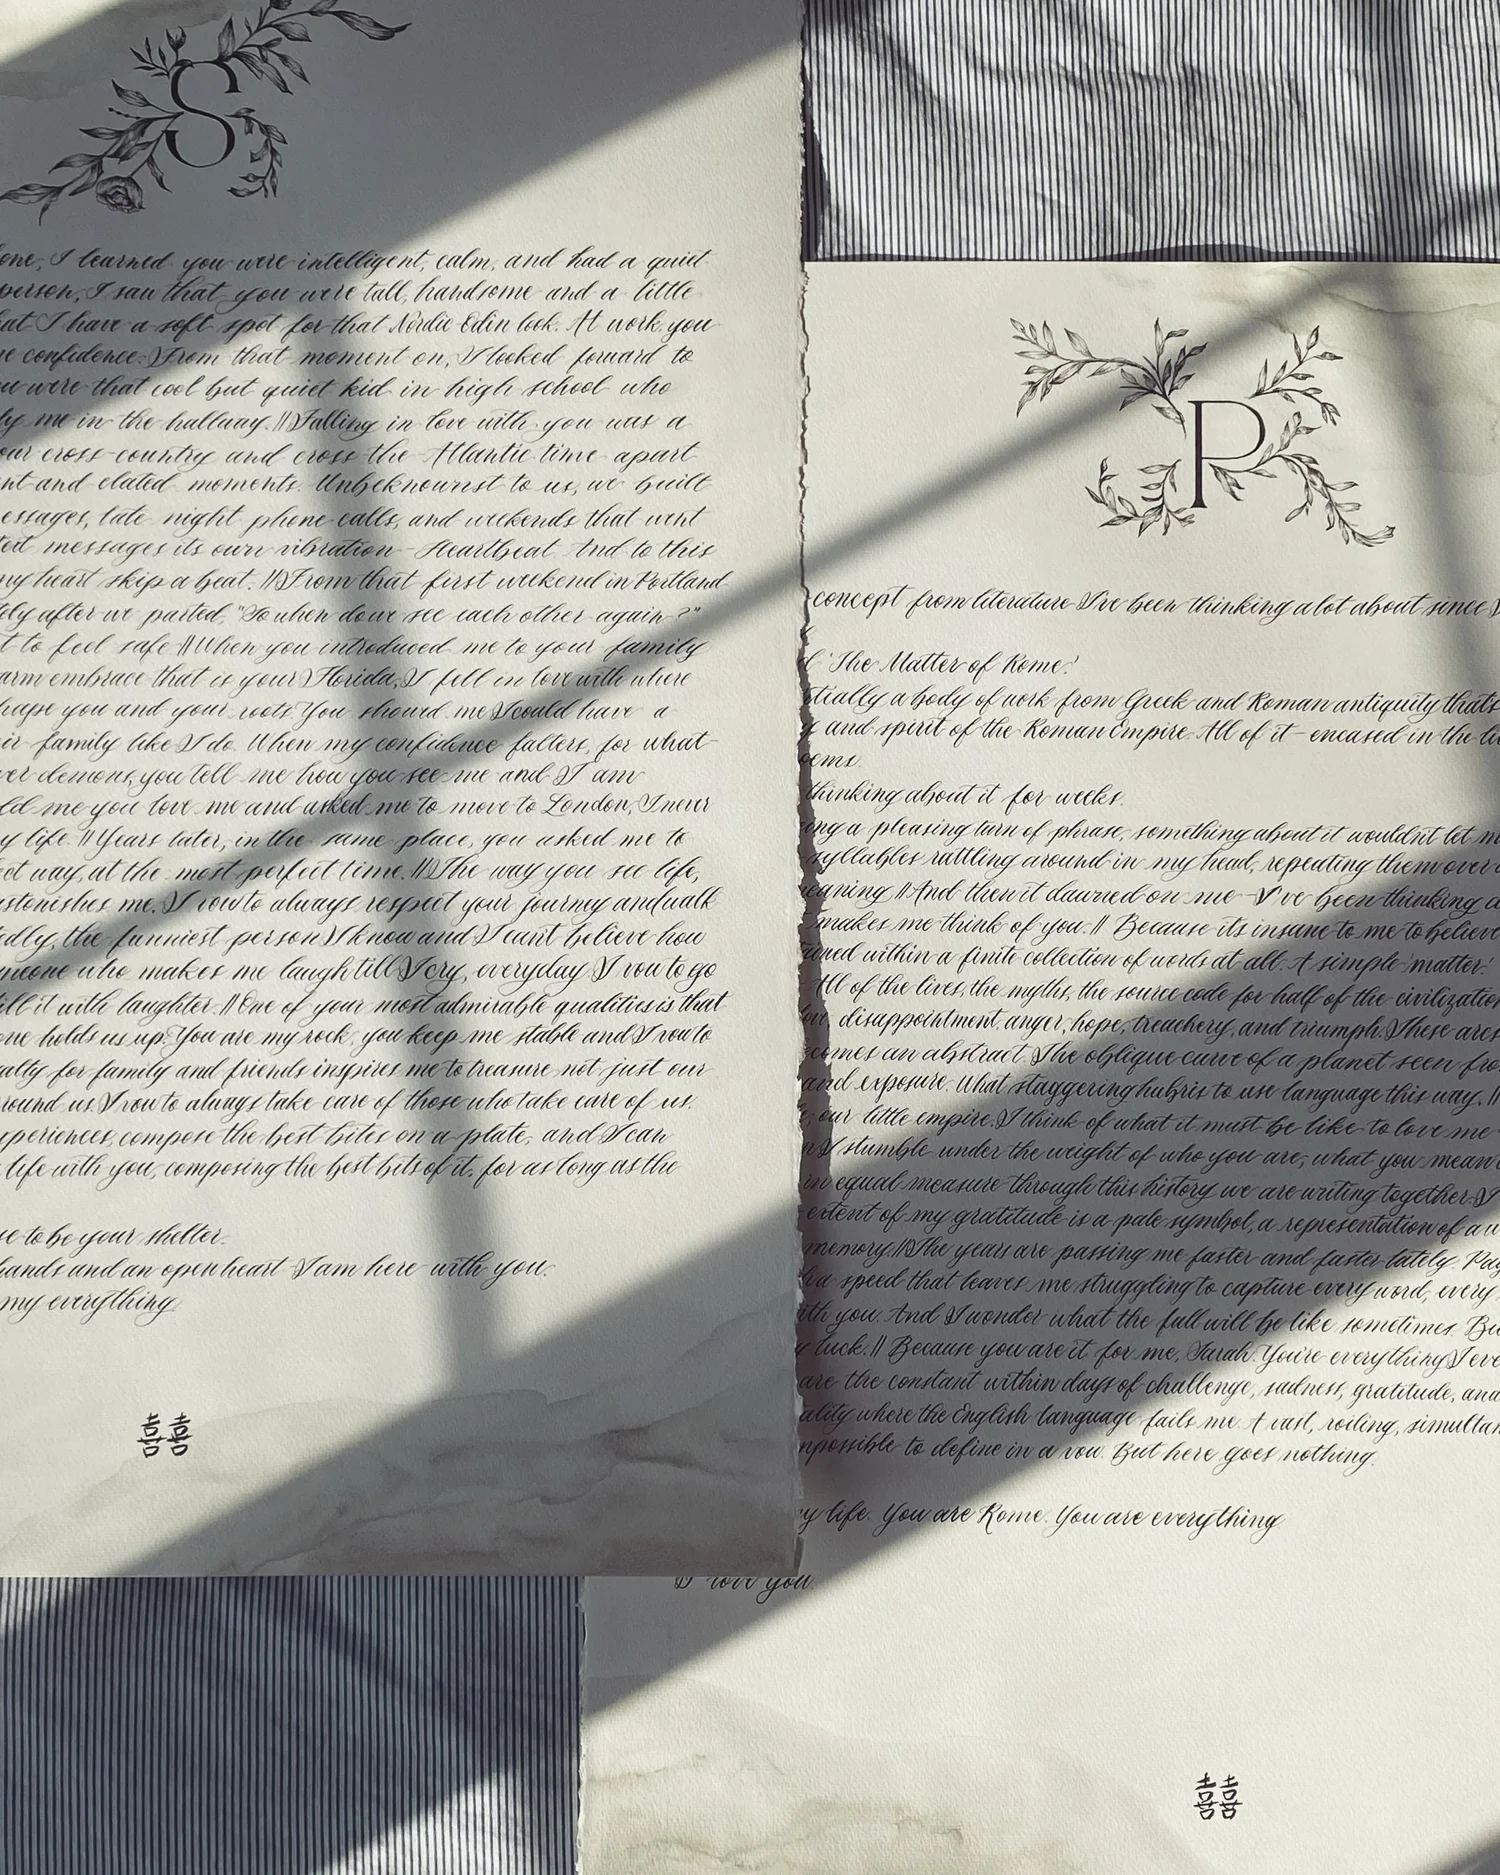 S
one, I learned you were intelligent, calm, and had a quiet
person, I saw that you were tall, handsome and a little
hat I have a soft spot for that Nordic Edin look. At work you
confidence. From that moment on, I looked forward to
were that cool but quiet kid in high school who
by me in the hallway. || Falling in love with you was a
our cross-country and cross the Atlantic time apart
and elated moments. Unbeknownst to us, we built
essages, late night phone calls, and weekends that went
messages its own vibration - Heartbeat. And to this
my heart skip a beat. || From that first weekend in Portland
after we parted, "So when do we see each other again?"
t to feel safe || When you introduced me to your family
arm embrace that is your Florida, I fell in love with where
hape you and your roots. You showed me I could have a
ir family like I do. When my confidence falters, for what-
ver demons, you tell me how you see me and I am
ld me you love me and asked me to move to London, I never
y life. || Years later, in the same place, you asked me to
ect way, at the most perfect time. || The way you see life,
astonishes me. I vow to always respect your journey and walk
edly, the funniest person I know and I can't believe how
meone who makes me laugh till I cry, everyday I vow to go
ill it with laughter. || One of your most admirable qualities is that
one holds us up. You are my rock, you keep me stable and I vow to
alty for family and friends inspires me to treasure not just our
round us. I vow to always take care of those who take care of us.
xperiences, compose the best bites on a plate, and I can
life with you, composing the best bits of it, for as long as the
se to be your shelter.
hands and an open heart I am here with you.
my everything
囍
P
concept from literature I've been thinking a lot about since I
'The Matter of Rome.'
tially a body of work from Greek and Roman antiquity that's
y and spirit of the Roman Empire. All of it - encased in the
oems.
thinking about it for weeks.
ing a pleasing turn of phrase, something about it wouldn't let m
syllables rattling around in my head, repeating them over
eaning || And then it dawned on me - I've been thinking a
makes me think of you. || Because its insane to me to believe
ined within a finite collection of words at all. A simple 'matter.'
All of the lives, the myths, the source code for half of the civilization
love, disappointment, anger, hope, treachery, and triumph. These are
comes an abstract. The oblique curve of a planet seen fro
and exposure. What staggering hubris to use language this way. ||
, our little empire. I think of what it must be like to love me
I stumble under the weight of who you are, what you mean
in equal measure through this history we are writing together. I
extent of my gratitude is a pale symbol, a representation of a
memory. || The years are passing me faster and faster lately. Pag
h a speed that leaves me struggling to capture every word, every
ith you. And I wonder what the full will be like sometimes. Bu
y luck. || Because you are it for me, Sarah. You're everything I eve
are the constant within days of challenge, sadness, gratitude, and
ality where the English language fails me. A vast, roiling, simultan
mpossible to define in a vow. But here goes nothing.
y life. You are Rome. You are everything
I love you.
囍